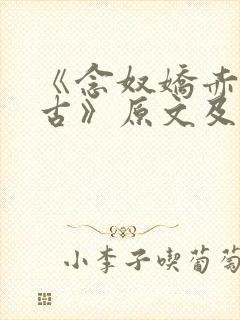 《念奴娇赤
古》原文及
小李子喫葡萄